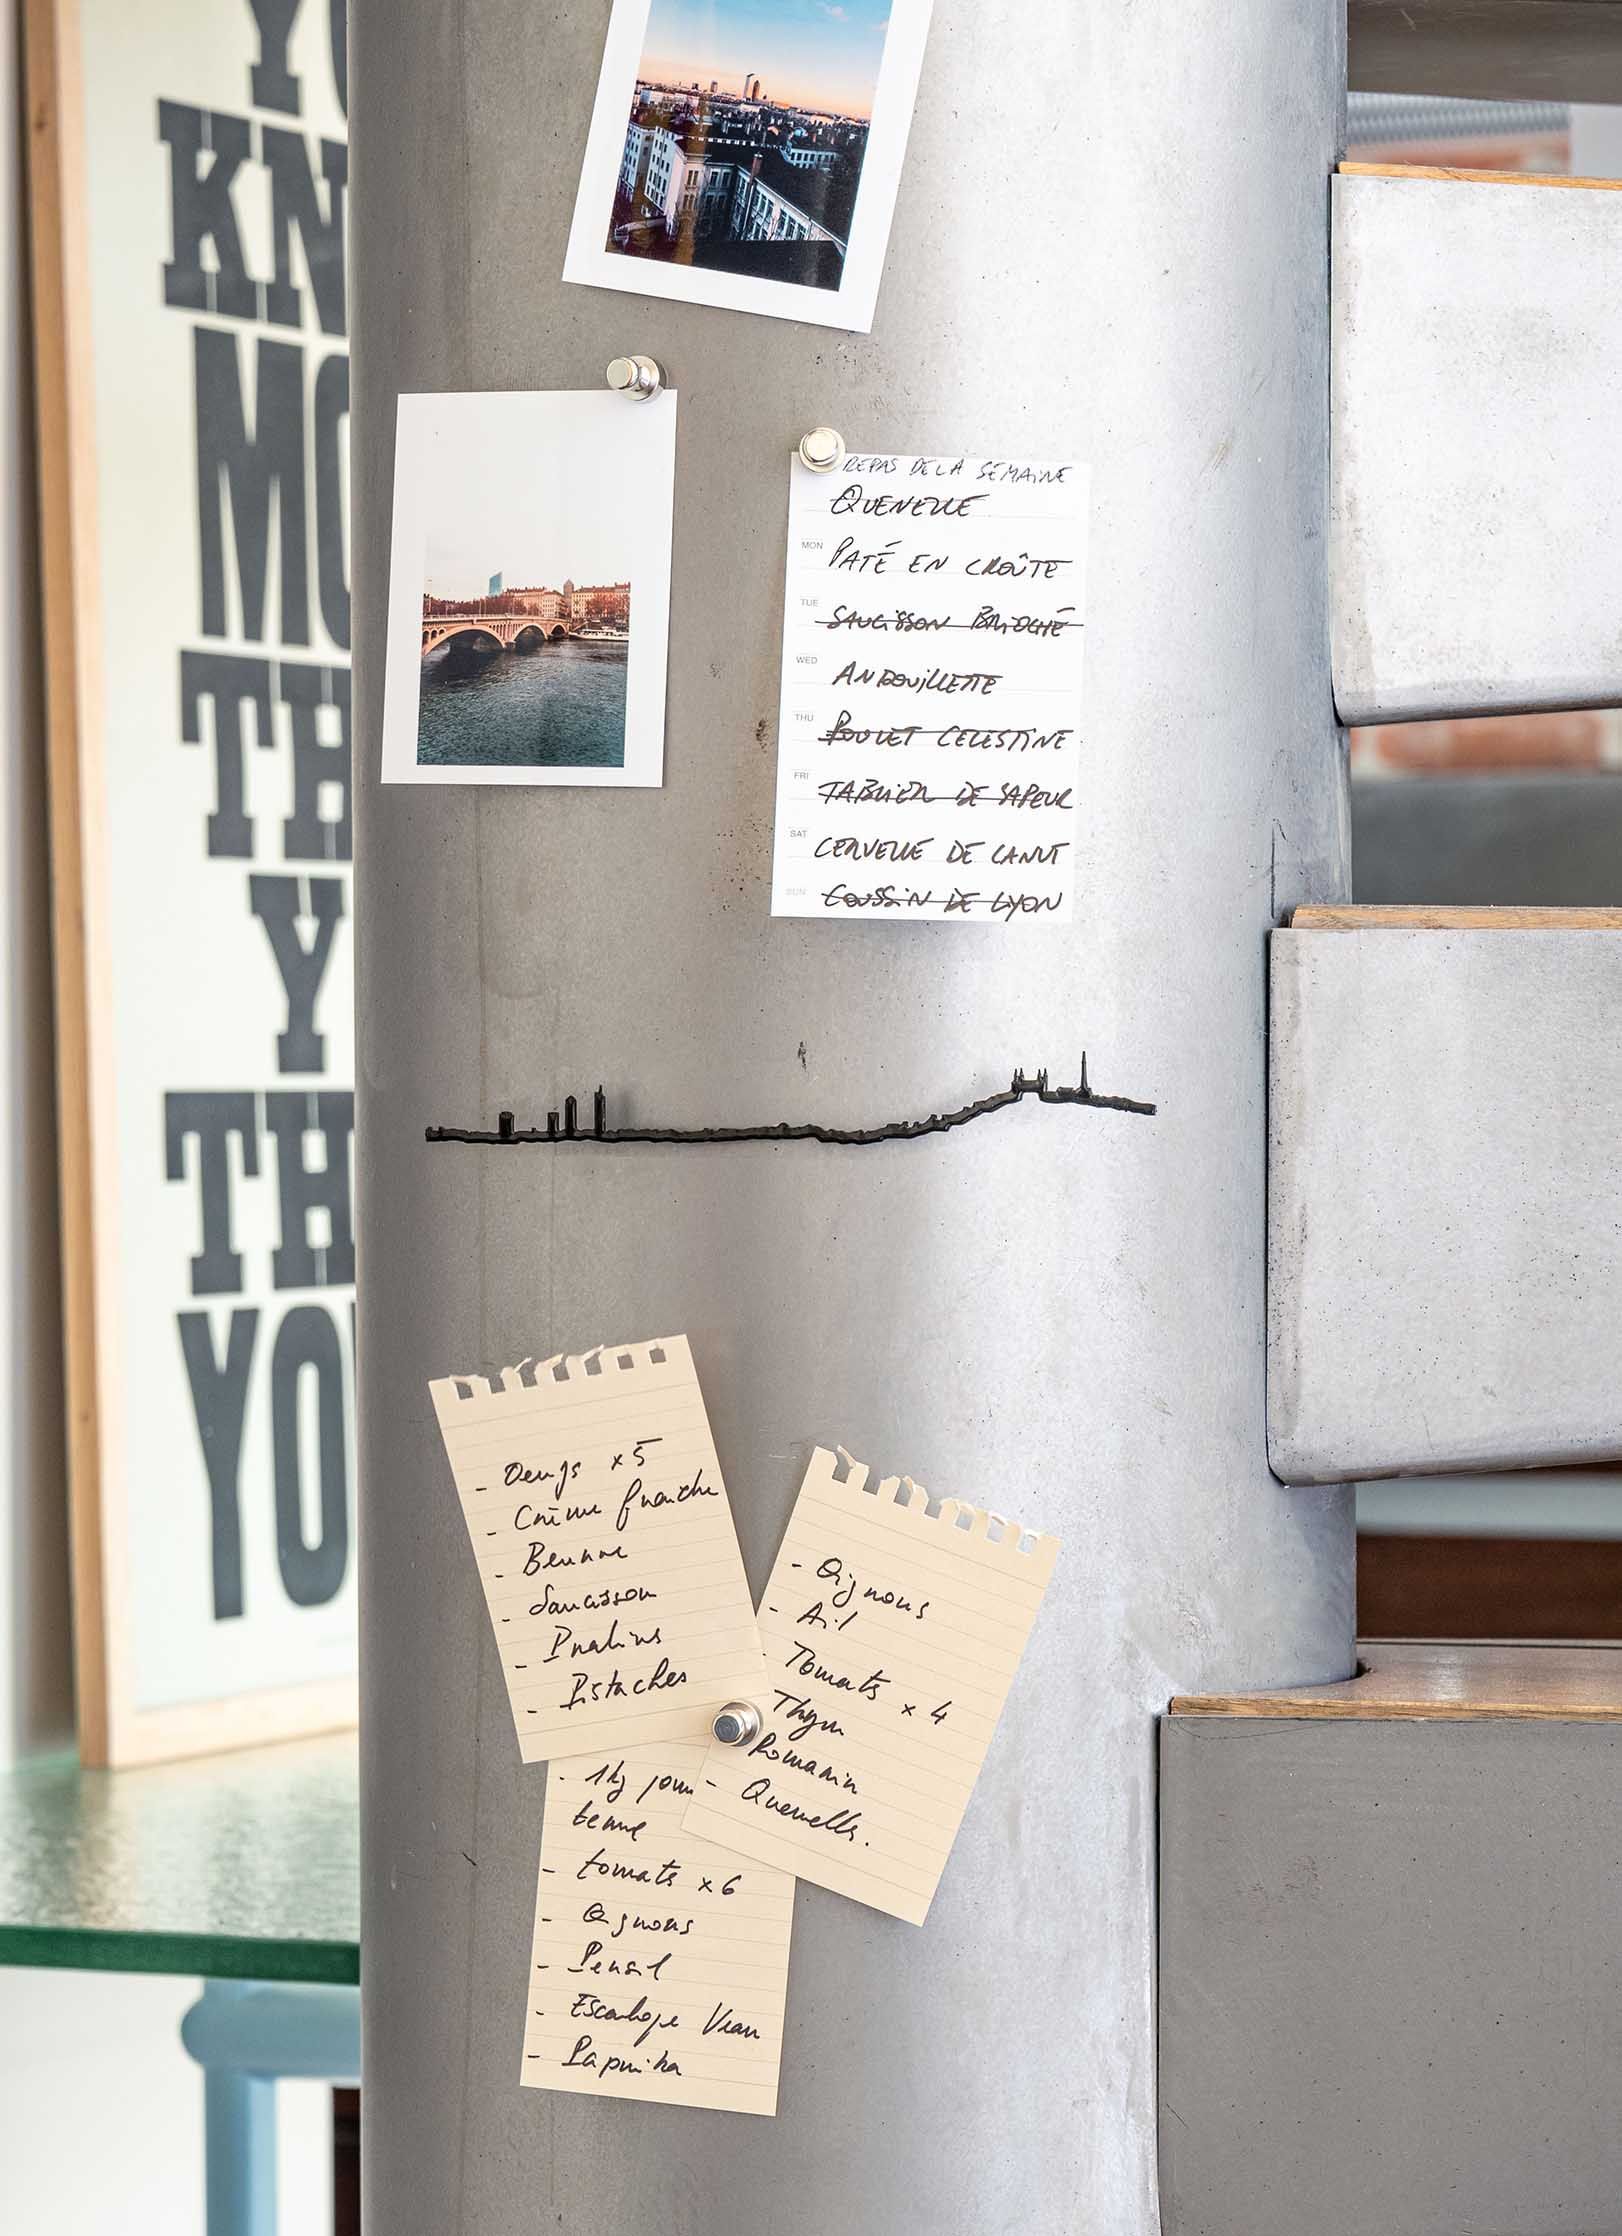 YO
KN
MO
TH
Y
TH
YO
REPAS DE LA SEMAINE
QUENELLE
MON PATÉ EN CROÛTE
TUE SAUCISSON BRIOCHÉ
WED ANDOUILLETTE
THU POULET CELESTINE
FRI TABLIER DE SAPEUR
SAT CERVELLE DE CANUT
SUN COUSSIN DE LYON
- Oeufs x5
- Crème fraiche
- Beurre
- Saucisson
- Pralins
- Pistaches
- Oignons
- Ail
- Tomats x 4
Thym
Romarin
- Quenells.
- 1kg pom
terre
- tomats x 6
- Oignons
- Persil
- Escalope Veau
- Paprika